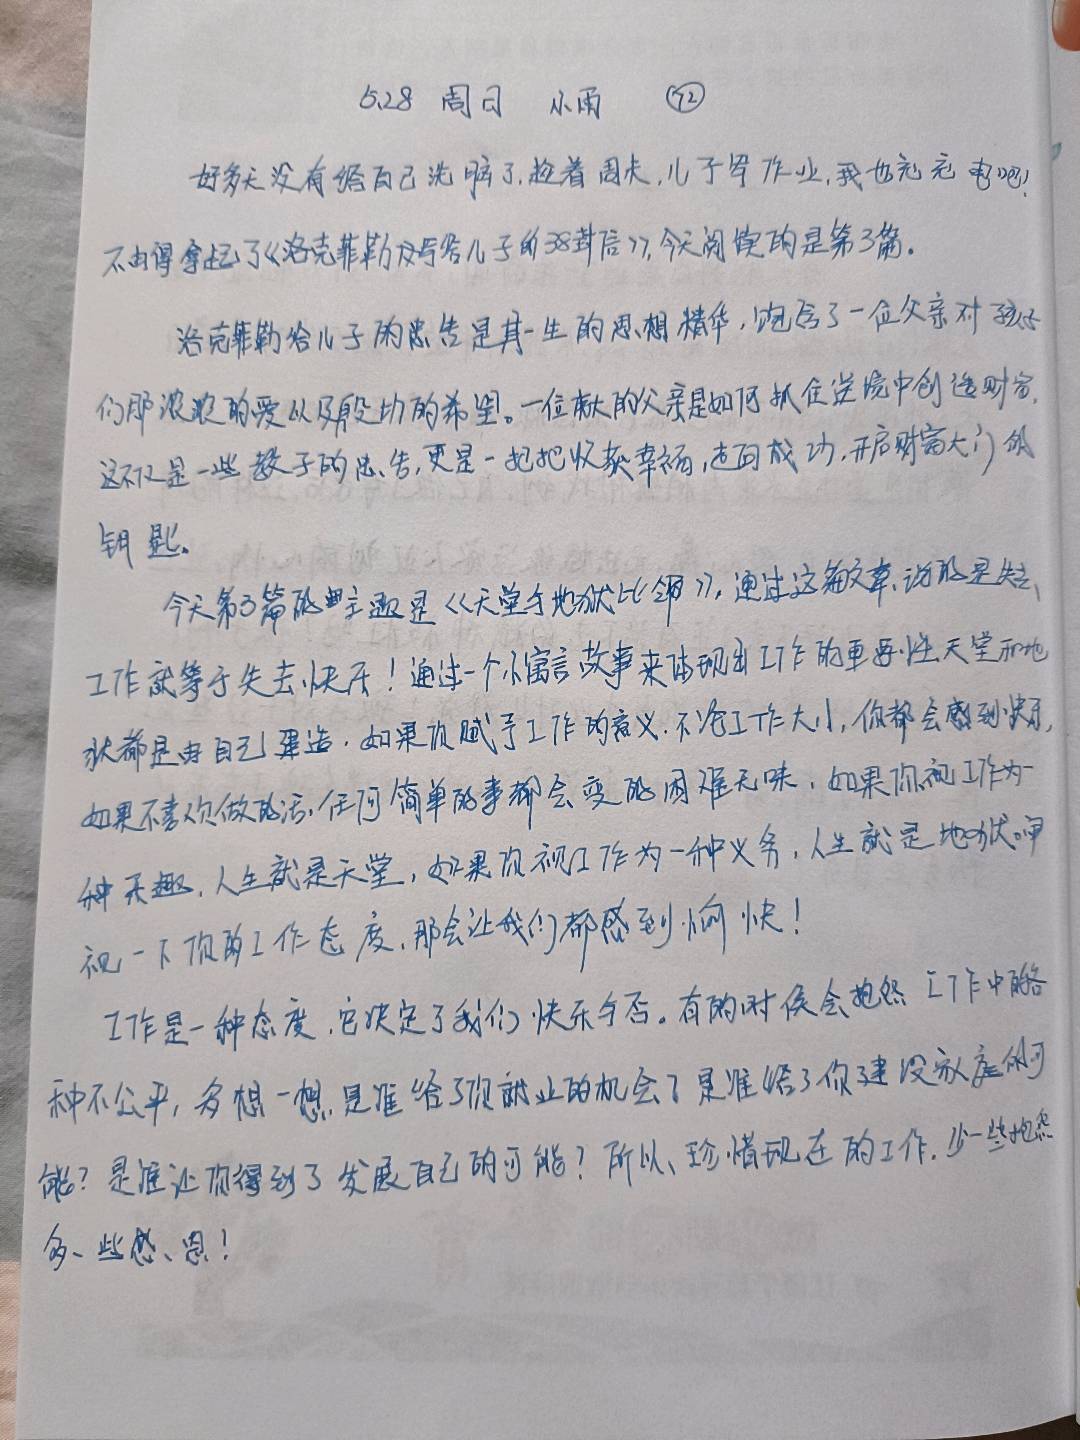 5.28 周日 小雨 72
好多天没有给自己洗脑了,趁着周末,儿子写作业,我也充充电吧!
不由得拿起了《洛克菲勒及写给儿子的38封信》,今天阅读的是第3篇。
洛克菲勒给儿子的忠告是其一生的思想精华,饱含了一位父亲对孩子
们那浓浓的爱以及殷切的希望。一位伟大的父亲是如何抓住逆境中创造财富,
这不仅是一些教子的忠告,更是一把把收获幸福,走向成功,开启财富大门的
钥匙。
今天第3篇的主题是《天堂与地狱比邻》,通过这篇文章,说的是失去
工作就等于失去快乐!通过一个小寓言故事来体现出工作的重要性天堂和地
狱都是由自己建造,如果你赋予工作的意义,不论工作大小,你都会感到快乐,
如果不喜欢做的话,任何简单的事都会变的困难无味,如果你视工作为一
种乐趣,人生就是天堂,如果你视工作为一种义务,人生就是地狱审
视一下你的工作态度,那会让我们都感到愉快!
工作是一种态度,它决定了我们快乐与否。有的时候会抱怨工作中的各
种不公平,多想一想,是谁给了你就业的机会?是谁给了你建设家庭的可
能?是谁让你得到了发展自己的可能?所以、珍惜现在的工作,少一些抱怨
多一些感恩!